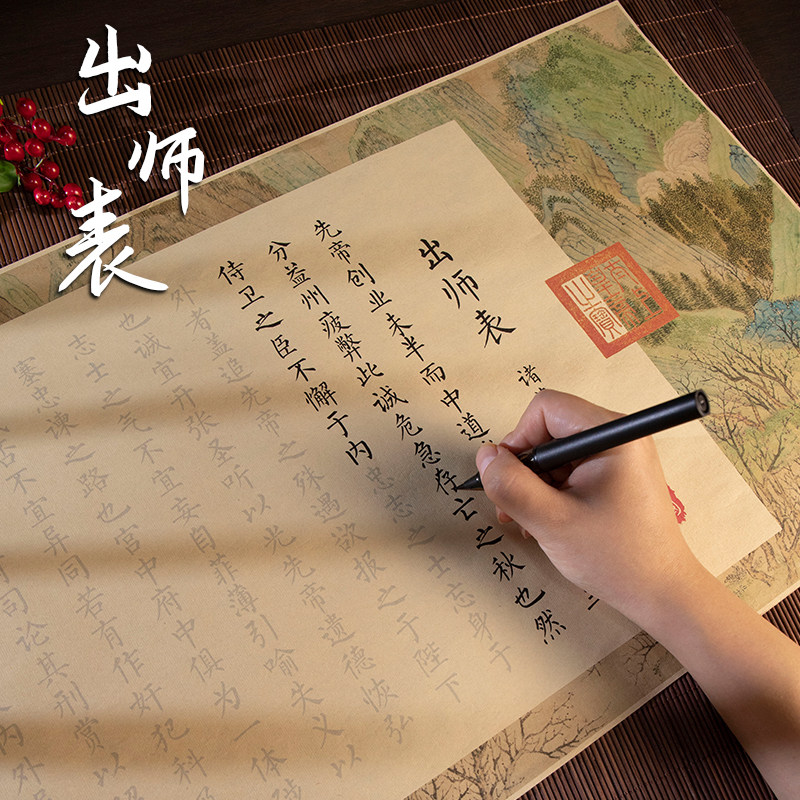 出师表
出师表
诸
先帝创业未半而中道
三
分益州疲弊此诚危急存亡之秋也然
侍卫之臣不懈于内忠志之士忘身于
外者盖追先帝之殊遇欲报之于陛下
也诚宜开张圣听以光先帝遗德恢弘
志士之气不宜妄自菲薄引喻失义以
塞忠谏之路也宫中府中俱为一体陟
否不宜异同若有作奸犯科
司论其刑赏以
内外